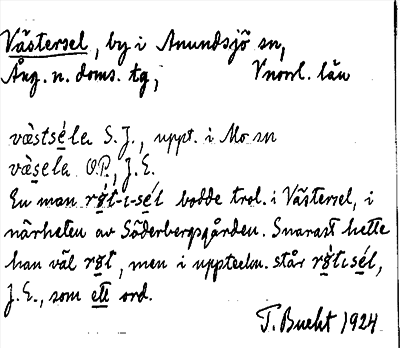 Västersel, by i Anundsjö sn,
Ång. n. doms. tg, Vnorrl. län
væstsé̱la S. J., uppt. i Mo sn
væ̀se̱la O.P., J.E.
En man rǿ̱t-ı-sé̱l bodde trol. i Västersel, i
närheten av Söderbergsgården. Snarast hette
han väl rø̱t, men i uppteckn. står rø̱̀tısé̱l,
J.E., som ett ord.
T. Bucht 1924